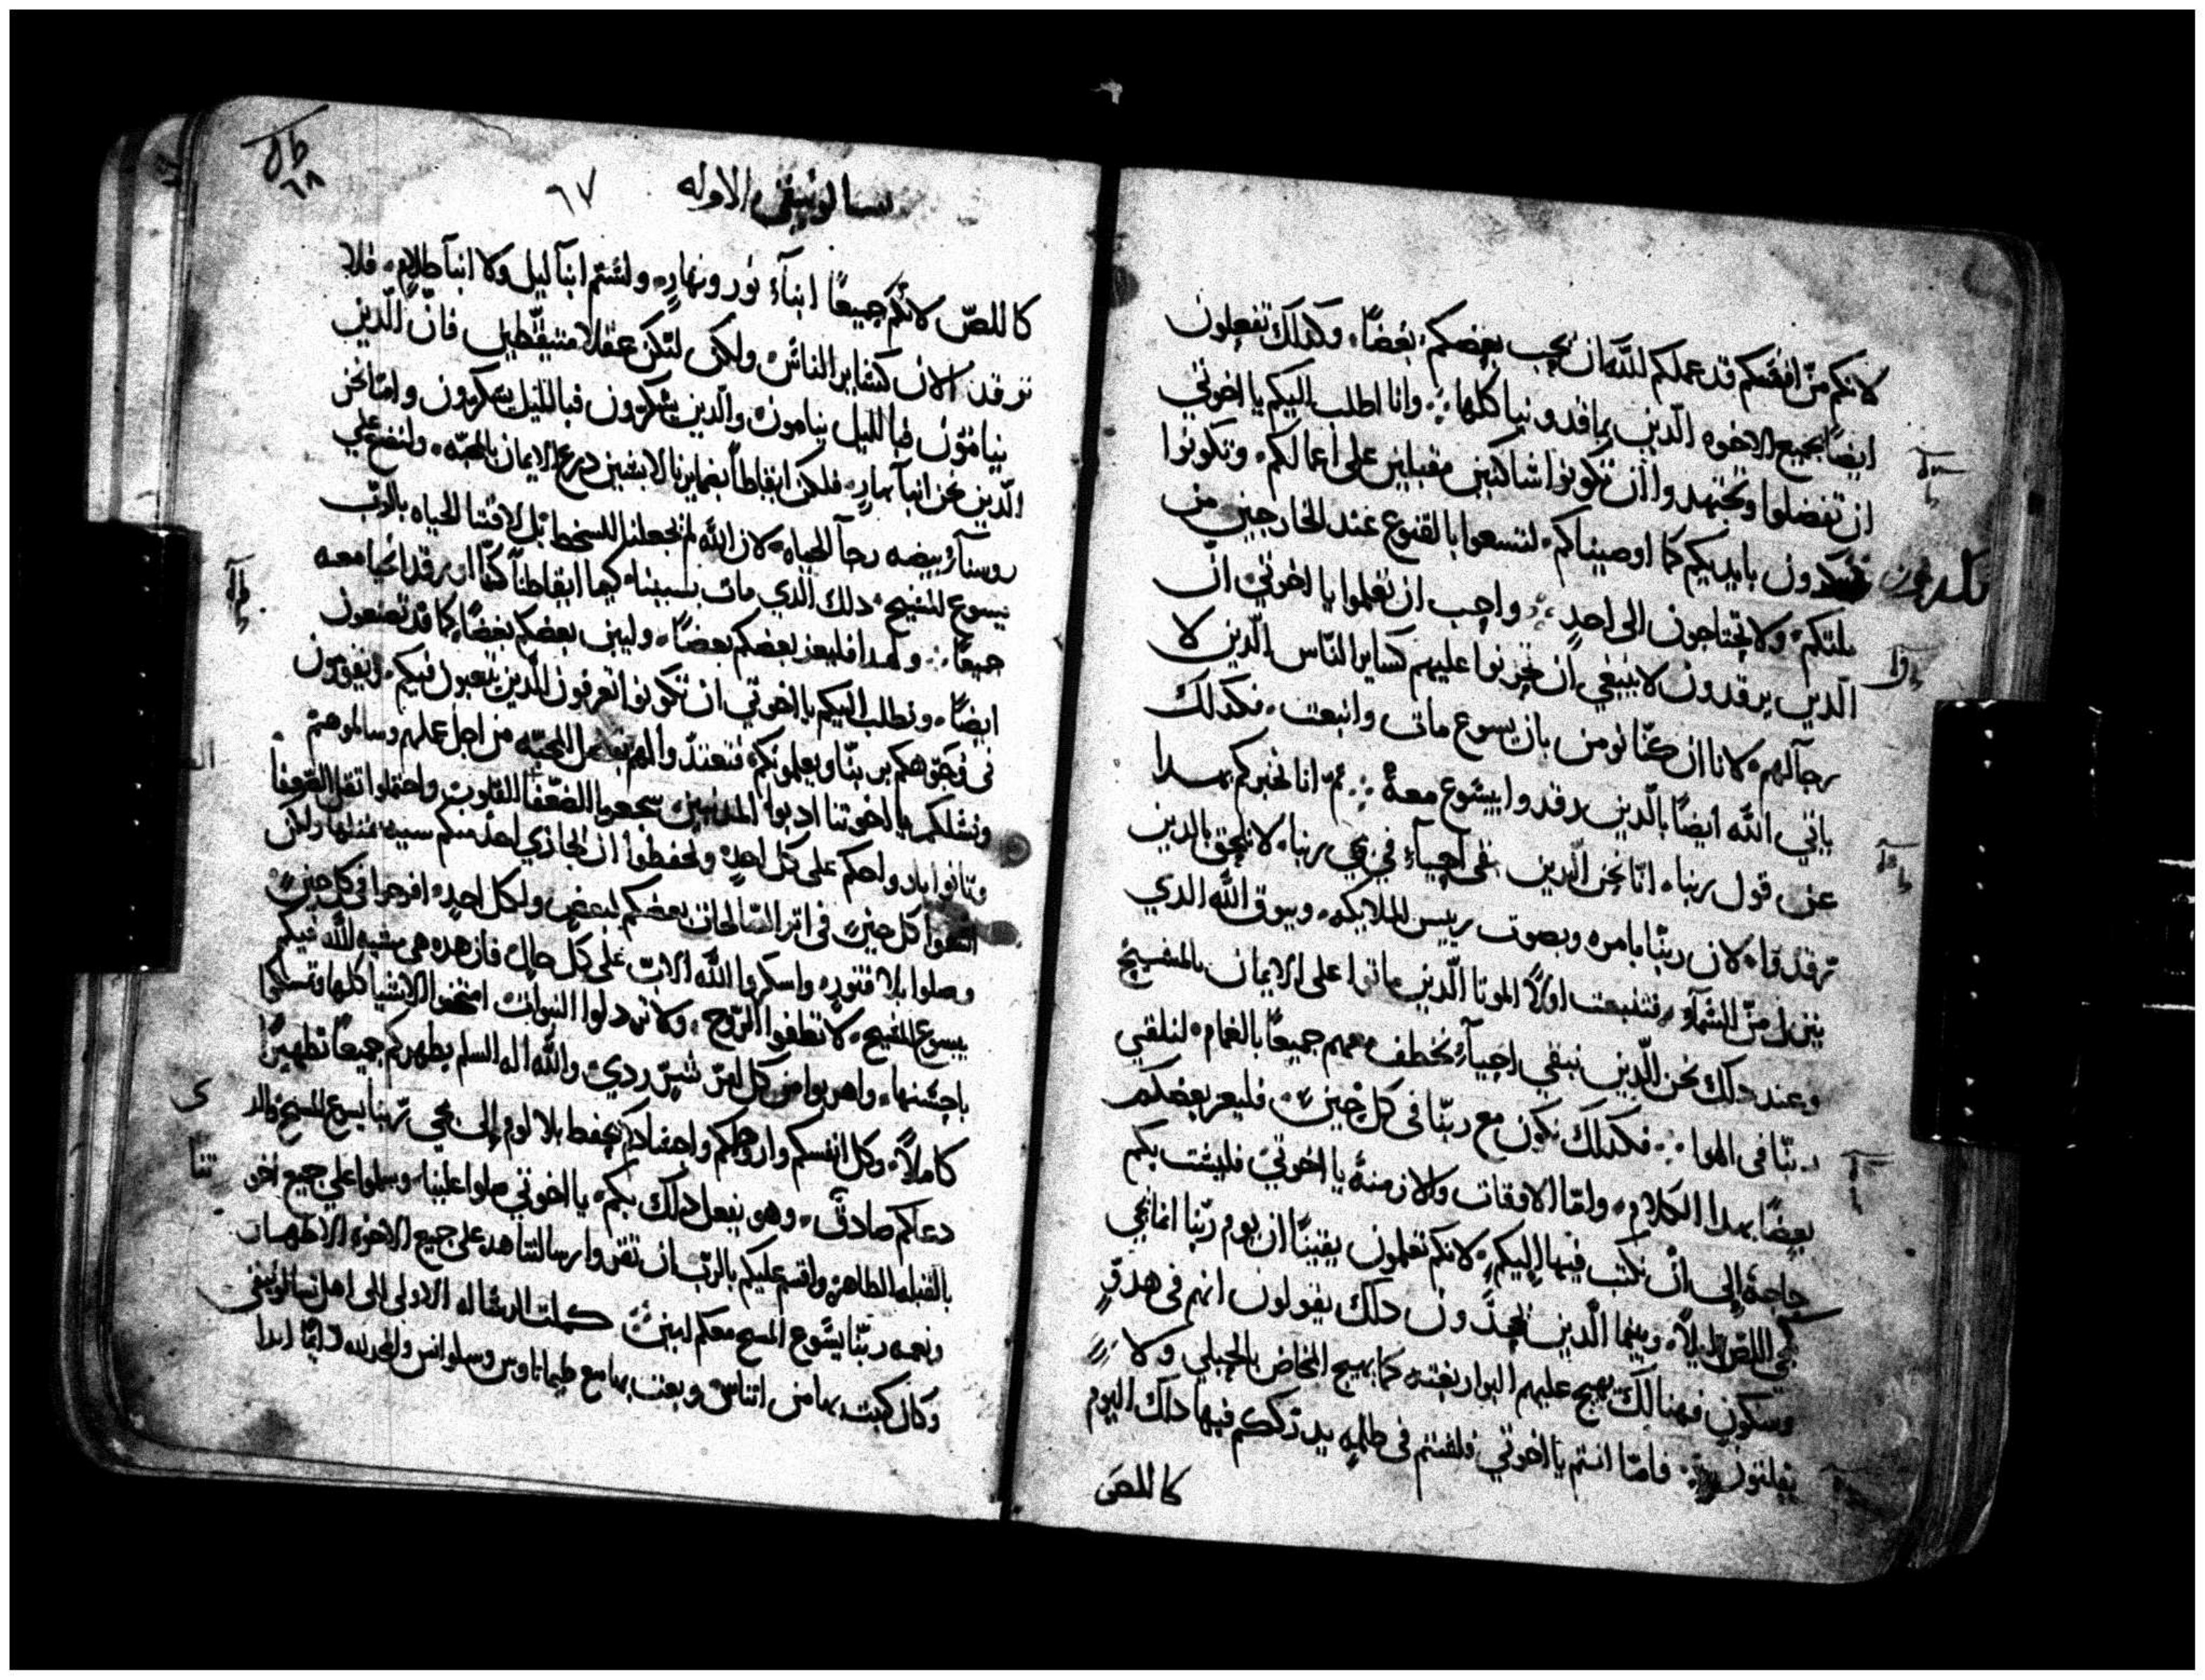 لانكم من انفسكم قد عملكم الله ان يحب بعضكم بعضًا، وكدلك تفعلون
ايضًا بجميع الاخوه الدين بماقدونيا كلها ؞ وانا اطلب اليكم يا اخوتي
ان تفضلوا وتجتهدوا ان تكونوا شاكتين مقبلين على اعمالكم، وتكونوا
تكدون بايديكم كما اوصيناكم، لتسعوا بالقنوع عند الخارجين من
ملتكم، ولا تحتاجون الى احدٍ ؞ واجب ان تعلموا يا اخوتي ان
الدين يرقدون لا ينبغي ان تحزنوا عليهم كساير الناس الدين لا
رجآ لهم، لانا ان كنا نومن بان يسوع مات وانبعت، فكدلك
ياتي الله ايضًا بالدين رقدوا بيسوع معهُ ؞ ثم انا نخبركم بهدا
عن قول ربنا، انا نحن الدين نبقى احيآء في مجي ربنا، لا نلحق بالدين
رقدوا، لان ربنا بامره وبصوت رييس الملايكه، وببوق الله الدي
ينزل من السمآء، فتنبعت اولاً الموتا الدين ماتوا على الايمان بالمسيح
وعند دلك نحن الدين نبقي احيآء نخطف معهم جميعًا بالغمام، لنلقي
ربنا في الهوا ؞ فكدلك نكون مع ربنا في كل حين، فليعز بعضكم
بعضًا بهدا الكلام، ولقا الاوقات والازمنه يا اخوتي فليست بكم
حاجة الى ان نكتب فيها اليكم، لانكم تعلمون يقينًا ان يوم ربنا انما يجي
كمجي اللص ليلاً، وبينما الدين يجحدون دلك يقولون انهم في هدوٍ
وسكون فهنالك يهيج عليهم البوار بغته كما يهيج المخاض بالحبلي ولا
يفلتون ؞ فاما انتم يا اخوتي فلستم في ظلمه يدرككم فيها دلك اليوم
كاللص
سالونيقي الاوله
٦٧
كاللص لانكم جميعًا ابناء نور ونهارٍ، ولستم ابنآ ليل ولا ابنآ ظلامٍ، فلا
نرقد الان كساير الناس ولكن لنكن عقلا متيقظين فان الدين
ينامون فبالليل ينامون والدين يسكرون فبالليل يسكرون واما نحن
الدين نحن ابنآ نهارٍ، فلنكن ايقاظاً بضمايرنا لابسين درع الايمان بالمحبه، ولنضع على
روسنآ بيضه رجآ الحياه، لان الله لم يجعلنا للسخط بل لاقتنا الحياه بالرب
يسوع المسيح، دلك الدي مات بسببنا، كيما ايقاظاً كنا او رقد انحيا معه
جميعًا ؞ ولهدا فليعز بعضكم بعضًا، وليبن بعضكم بعضًا، كما قد تصنعون
ايضًا، ونطلب اليكم يا اخوتي ان تكونوا تعرفون الدين يتعبون فيكم، ويقومون
في وجوهكم بربنا ويعلمونكم، فتعتدوا لهم بفضل المحبه من اجل عملهم وسالموهم
ونسلكم يا اخوتنا ادبوا المدنبين، شجعوا الضعفا القلوب واحتملوا تقل الضعفا
وتانوا بارواحكم على كل احدٍ، وتحفظوا ان يجازي احد منكم سييه بمتلها ولكن
اسعوا كل حين في اتر الصالحات بعضكم لبعض ولكل احدٍ، افرحوا في كل حين
وصلوا بلا فتورٍ، واشكروا الله الاب على كل حال، فان هده هي مشيه الله فيكم
بيسوع المسيح، لا تطفوا الروح، ولا تردلوا النبوات، امتحنوا الاشيا كلها وتمسكوا
باحسنها، واهربوا من كل امر شرير ردي، والله اله السلم يطهركم جميعًا تطهيرًا
كاملاً، وكل انفسكم وارواحكم واجسادكم يحفظ بلا لوم الى مجي ربنا يسوع المسيح والد
دعاكم صادق، وهو يفعل دلك بكم، يا اخوتي صلوا علينا، وسلموا على جميع اخو تنا
بالقبله الطاهره، واقسم عليكم بالرب ان تقروا رسالتنا هده على جميع الاخوه الاطهار
ونعمه ربنا يسوع المسيح معكم امين كملت الرساله الاولى الى اهل تسالونيقي
وكان كتبت بها من اتناس وبعت بها مع طيماتاوس وسلوانس والحمد لله دايمًا ابدا